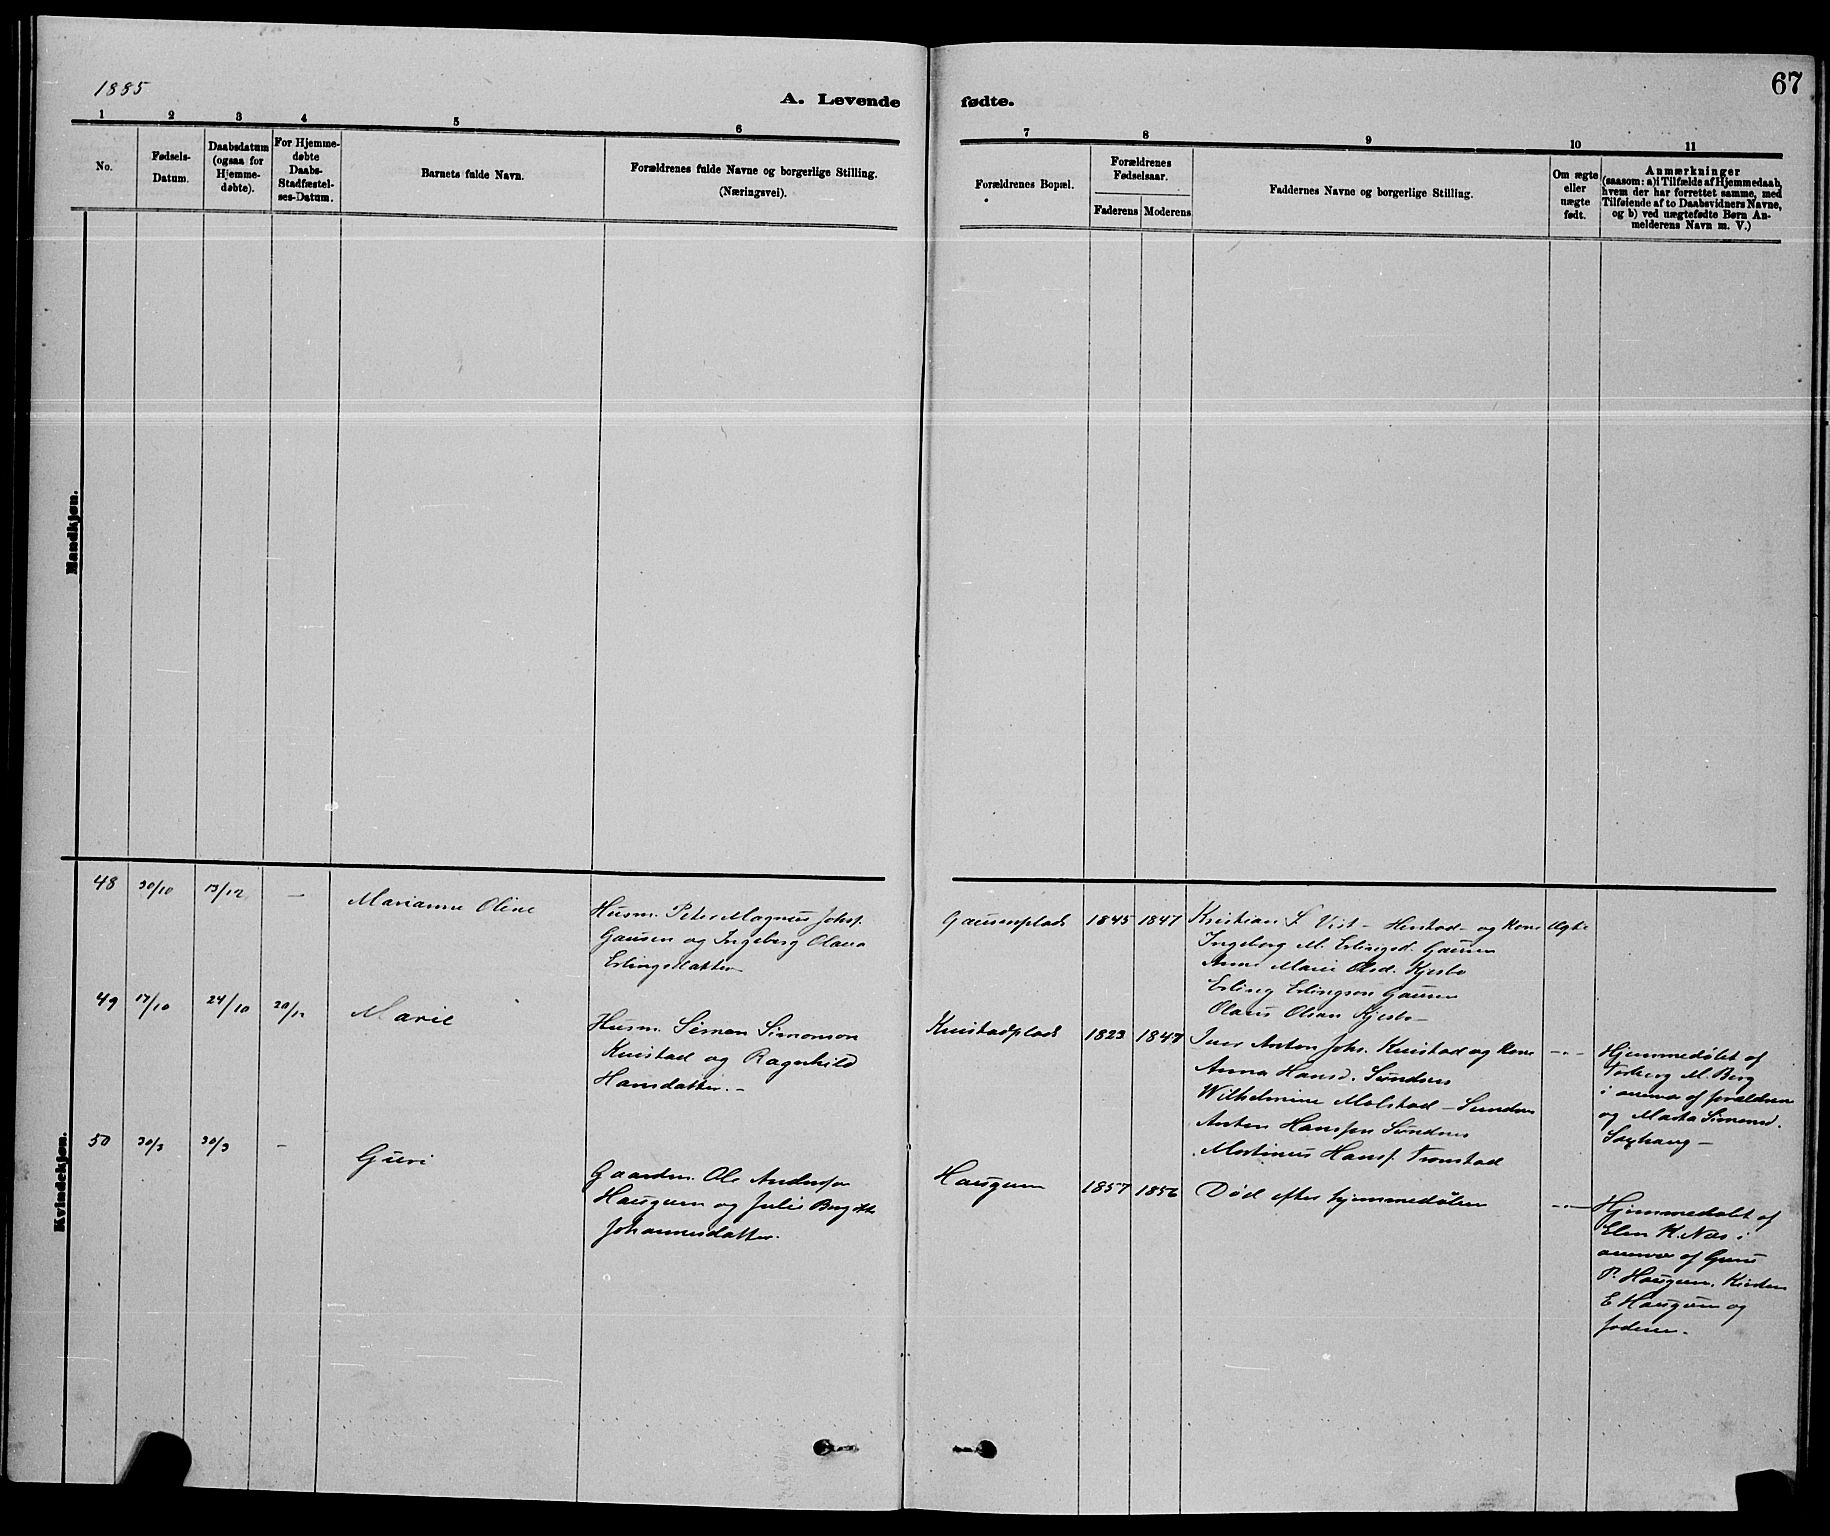 1885
A. Levende fødte.
67
1 2 3 4 5 6 7 8 9 10 11
No.
Fødsels-
Datum.
Daabsdatum
(ogsaa for
Hjemme-
døbte).
For Hjemme-
døbte
Daabs-
Stadfæstel-
ses-Datum.
Barnets fulde Navn.
Forældrenes fulde Navne og borgerlige Stilling.
(Næringsvei).
Forældrenes Bopæl.
Forældrenes
Fødselsaar.
Faderens Moderens
Faddernes Navne og borgerlige Stilling.
Om ægte
eller
uægte
født.
Anmærkninger
(saasom: a) i Tilfælde af Hjemmedaab,
hvem der har forrettet samme, med
Tilføiende af to Daabsvidners Navne,
og b) ved uægtefødte Børn An-
melderens Navn m. V.)
Mandkjøn.
Kvindekjøn.
48 30/10 13/12 —
Marianne Oline
Husm. Peter Magnus Johs.
Gausen og Ingeborg Olava
Erlingsdatter
Gausenplads 1845 1847
Kristian S. Vist - Henstad - og Kone
Ingeborg M. Erlingsd. Gausen
Anne Marie Olsd. Kjesbo
Erling Erlingsen Gausen
Olaus Olsen Kjesbo -
Ægte
49 17/10 24/10 20/12
Marie
Husm. Simon Simonson
Knustad og Ragnhild
Hansdatter. -
Knustadplads 1823 1847
Iver Anton Johs. Knustad og Kone
Anna Hansd. Sundnes
Wilhelmine Molstad - Sundnes
Anton Hanssen Sundnes
Martinus Hans. Tronstad
-"-
Hjemmedøbt af
M. Berg
i af forældrene
og Marta Simonsd.
Saxhaug -
50 30/3 30/3 -
Guri
Gaardm. Ole Anderssen
Haugum og Julie Bergitte
Johannesdatter.
Haugum 1857 1856
Død efter hjemmedøben
-"-
Hjemmedøbt af
Elen K. Næs i
af Guru
P. Haugum, Kirsten
E Haugum og
faderen.